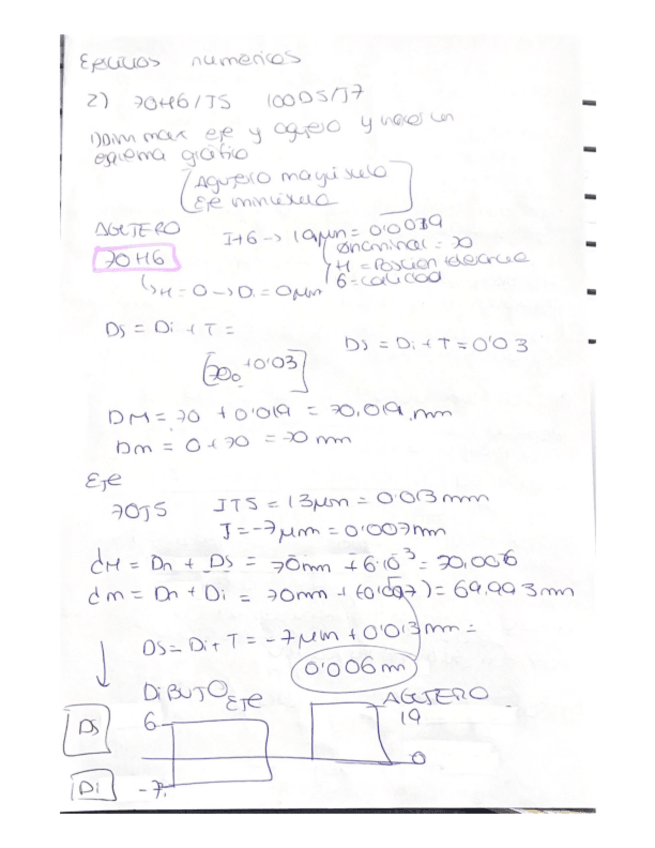 Ejercicios numericos
2) 70H6/J5 100D5/J7
1) Dim max eje y agujero y hacer un
esquema gráfico
Agujero mayúscula
Eje minúscula
AGUJERO IT6 -> 19µm = 0'0019
70H6 Ø nominal = 70
H = Posición
6 = calidad
H = 0 -> Di = 0µm
Ds = Di + T =
Ds = Di + T = 0'03
70₀ +0'03
DM = 70 + 0'019 = 70,019 mm
Dm = 0 + 70 = 70 mm
Eje
70J5 IT5 = 13µm = 0'013mm
J = -7µm = 0'007mm
dM = Dn + Ds = 70mm + 6·10³ = 70,006
dm = Dn + Di = 70mm + (-0'007) = 69,993mm
DS = Di + T = -7µm + 0'013mm =
0'006m
DIBUJO EJE AGUJERO
Ds 6 19
0
Di -7